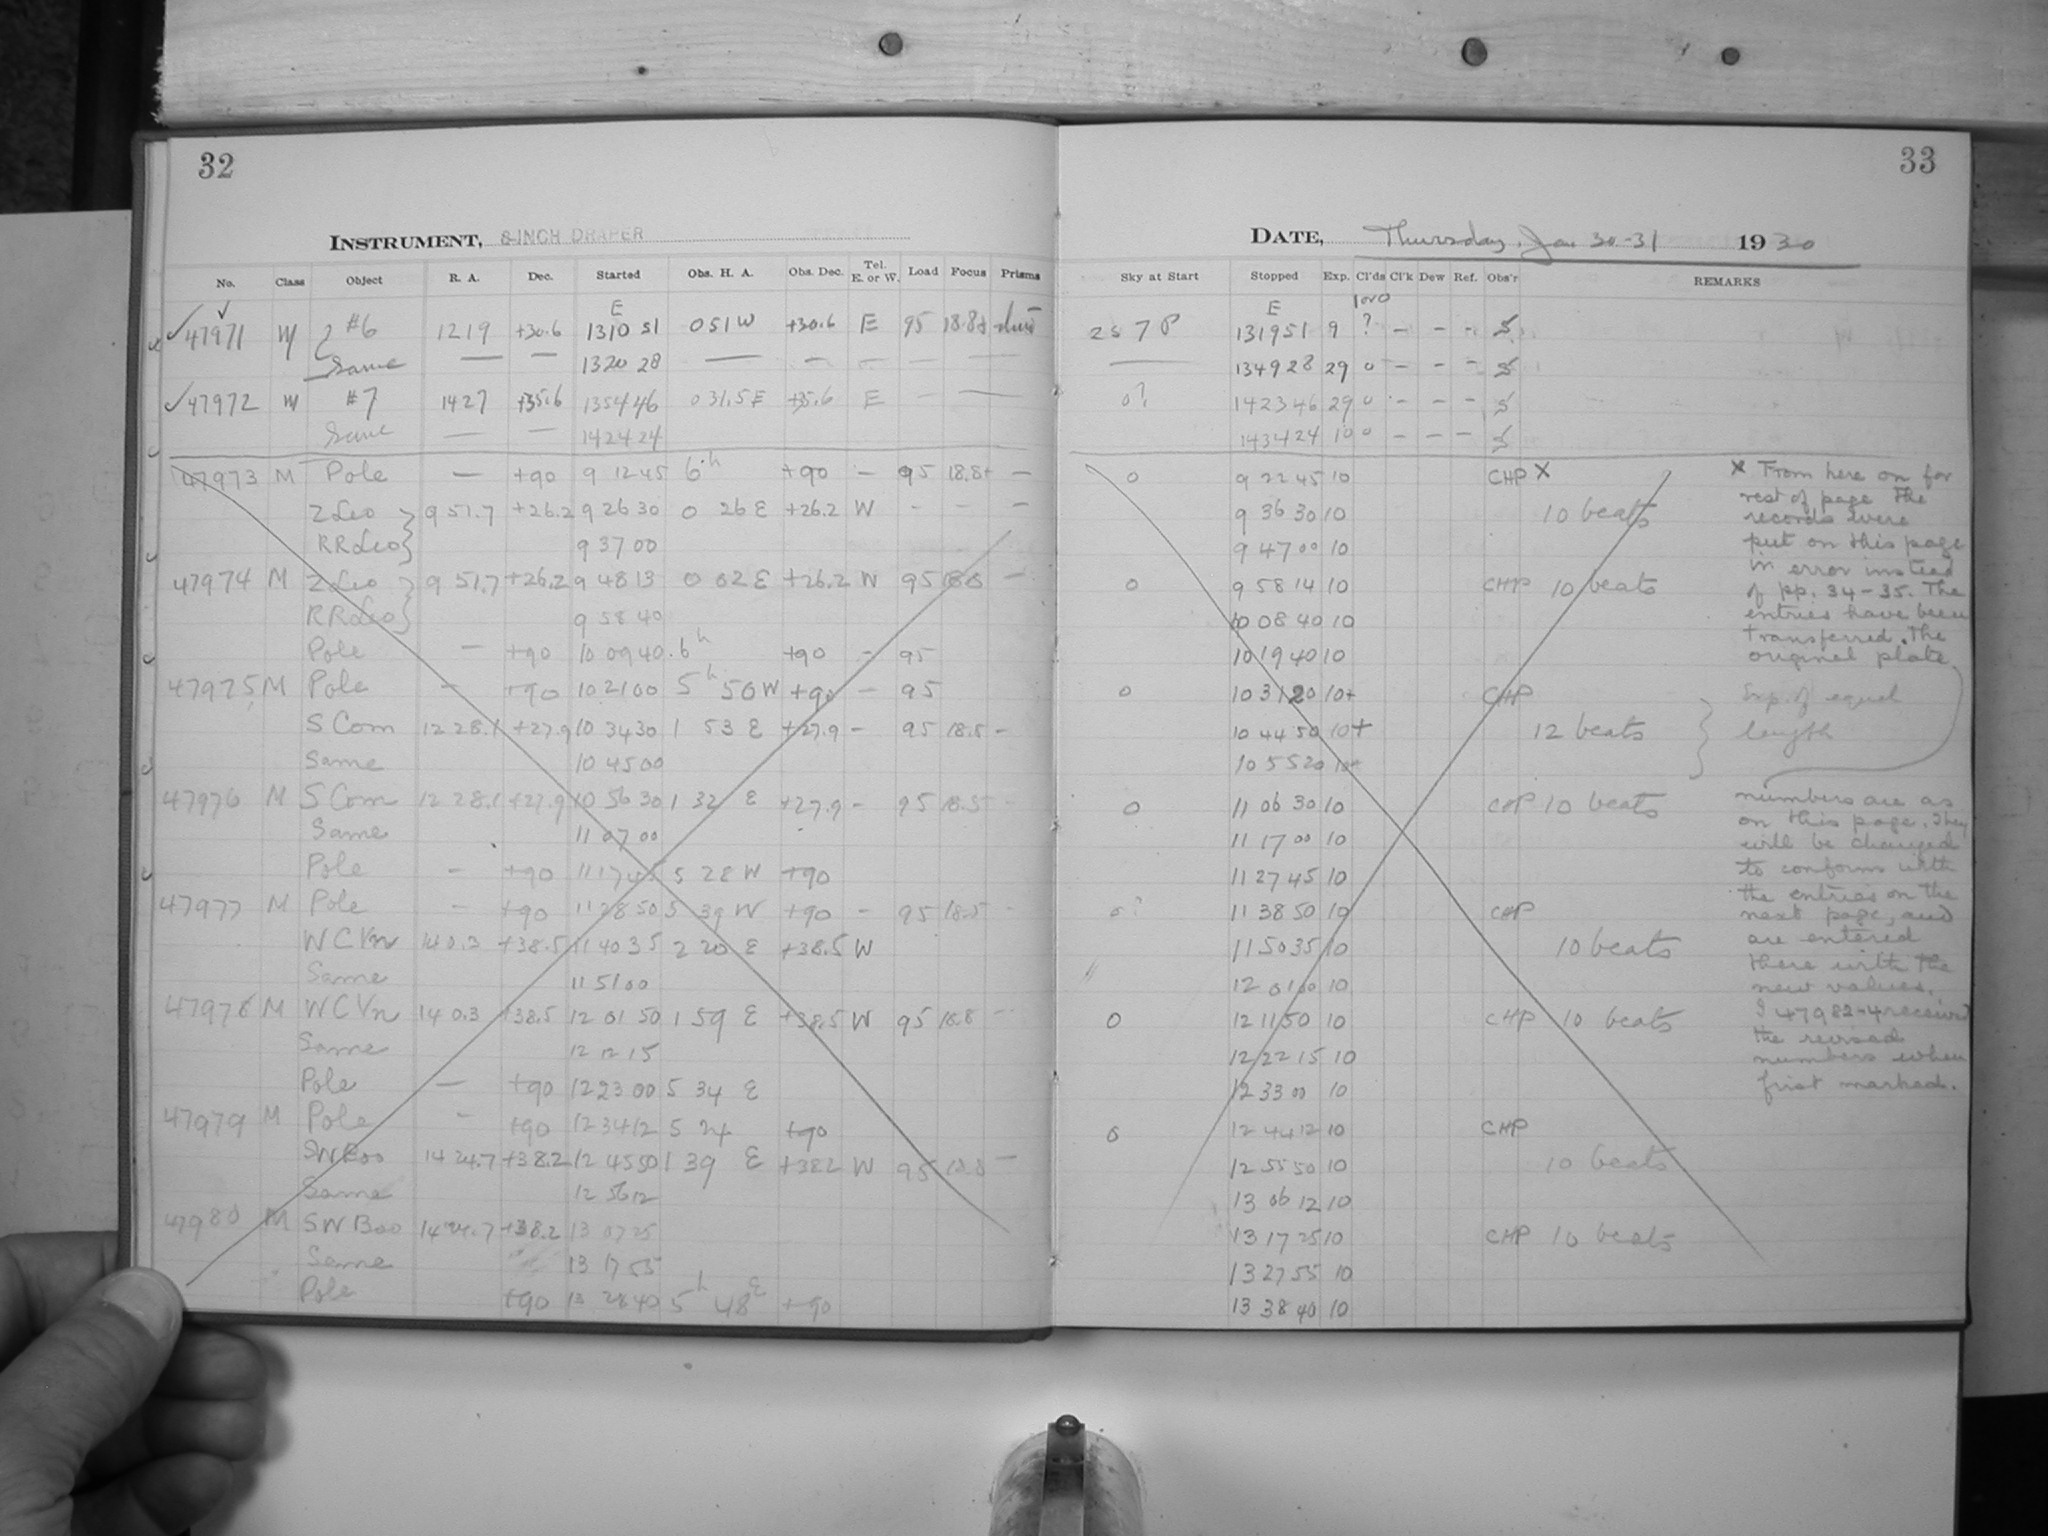 32
INSTRUMENT, 8-INCH DRAPER
No. Class Object R. A. Dec. Started Obs. H. A. Obs. Dec. Tel. E. or W. Load Focus Prisms
E
47971 M #6 1219 +30.6 1310 51 0 51 W +30.6 E 95 18.8
Same — — 1320 28 — — — — —
47972 M #7 1427 +35.6 135446 0 31.5 E +35.6 E — —
Same — — 142424
47973 M Pole — +90 9 12 45 6h +90 — 95 18.8+ —
Z Leo 9 57.7 +26.2 9 26 30 0 26 E +26.2 W - - -
RR Leo 9 37 00
47974 M Z Leo 9 57.7 +26.2 9 48 13 0 02 E +26.2 W 95 18.8 -
RR Leo 9 58 40
Pole — +90 10 09 40 6h +90 - 95
47975 M Pole — +90 10 21 00 5h 50 W +90 - 95
S Com 12 28.1 +27.9 10 34 30 1 53 E +27.9 - 95 18.5 -
Same 10 45 00
47976 M S Com 12 28.1 +27.9 10 56 30 1 32 E +27.9 - 95 18.5 -
Same 11 07 00
Pole - +90 11 17 45 5 28 W +90
47977 M Pole - +90 11 28 50 5 39 W +90 - 95 18.5 -
W CVn 14 0.3 +38.5 11 40 35 2 20 E +38.5 W
Same 11 51 00
47978 M W CVn 14 0.3 +38.5 12 01 50 1 59 E +38.5 W 95 18.8 -
Same 12 12 15
Pole — +90 12 23 00 5 34 E
47979 M Pole - +90 12 34 12 5 24 +90
SW Boo 14 24.7 +38.2 12 45 50 1 39 E +38.2 W 95 18.8 —
Same 12 56 12
47980 M SW Boo 14 24.7 +38.2 13 07 25
Same 13 17 55
Pole +90 13 28 40 5h 48 E +90
33
DATE, Thursday, Jan 30-31 1930
Sky at Start Stopped Exp. Cl'ds Cl'k Dew Ref. Obs'r REMARKS
E 1 or 0
2 s 7 P 131951 9 ? - - -
— 134928 29 0 - - -
0? 142346 29 0 - - -
143424 10 0 - - -
0 9 22 45 10 CHP X
9 36 30 10 10 beats
9 47 00 10
0 9 58 14 10 CHP 10 beats
10 08 40 10
10 19 40 10
0 10 31 20 10+ CHP
10 44 50 10+ 12 beats
10 55 20 10+
0 11 06 30 10 CHP 10 beats
11 17 00 10
11 27 45 10
0? 11 38 50 10 CHP
11 50 35 10 10 beats
12 01 00 10
0 12 11 50 10 CHP 10 beats
12 22 15 10
12 33 00 10
0 12 44 12 10 CHP
12 55 50 10 10 beats
13 06 12 10
13 17 25 10 CHP 10 beats
13 27 55 10
13 38 40 10
X From here on for
rest of page the
records were
put on this page
in error instead
of pp. 34-35. The
entries have been
transferred. The
original plate
Exp. of equal
length
numbers are as
on this page. They
will be changed
to conform with
the entries on the
next page, and
are entered
there with the
new values.
I 47982-4 received
the revised
numbers when
first marked.